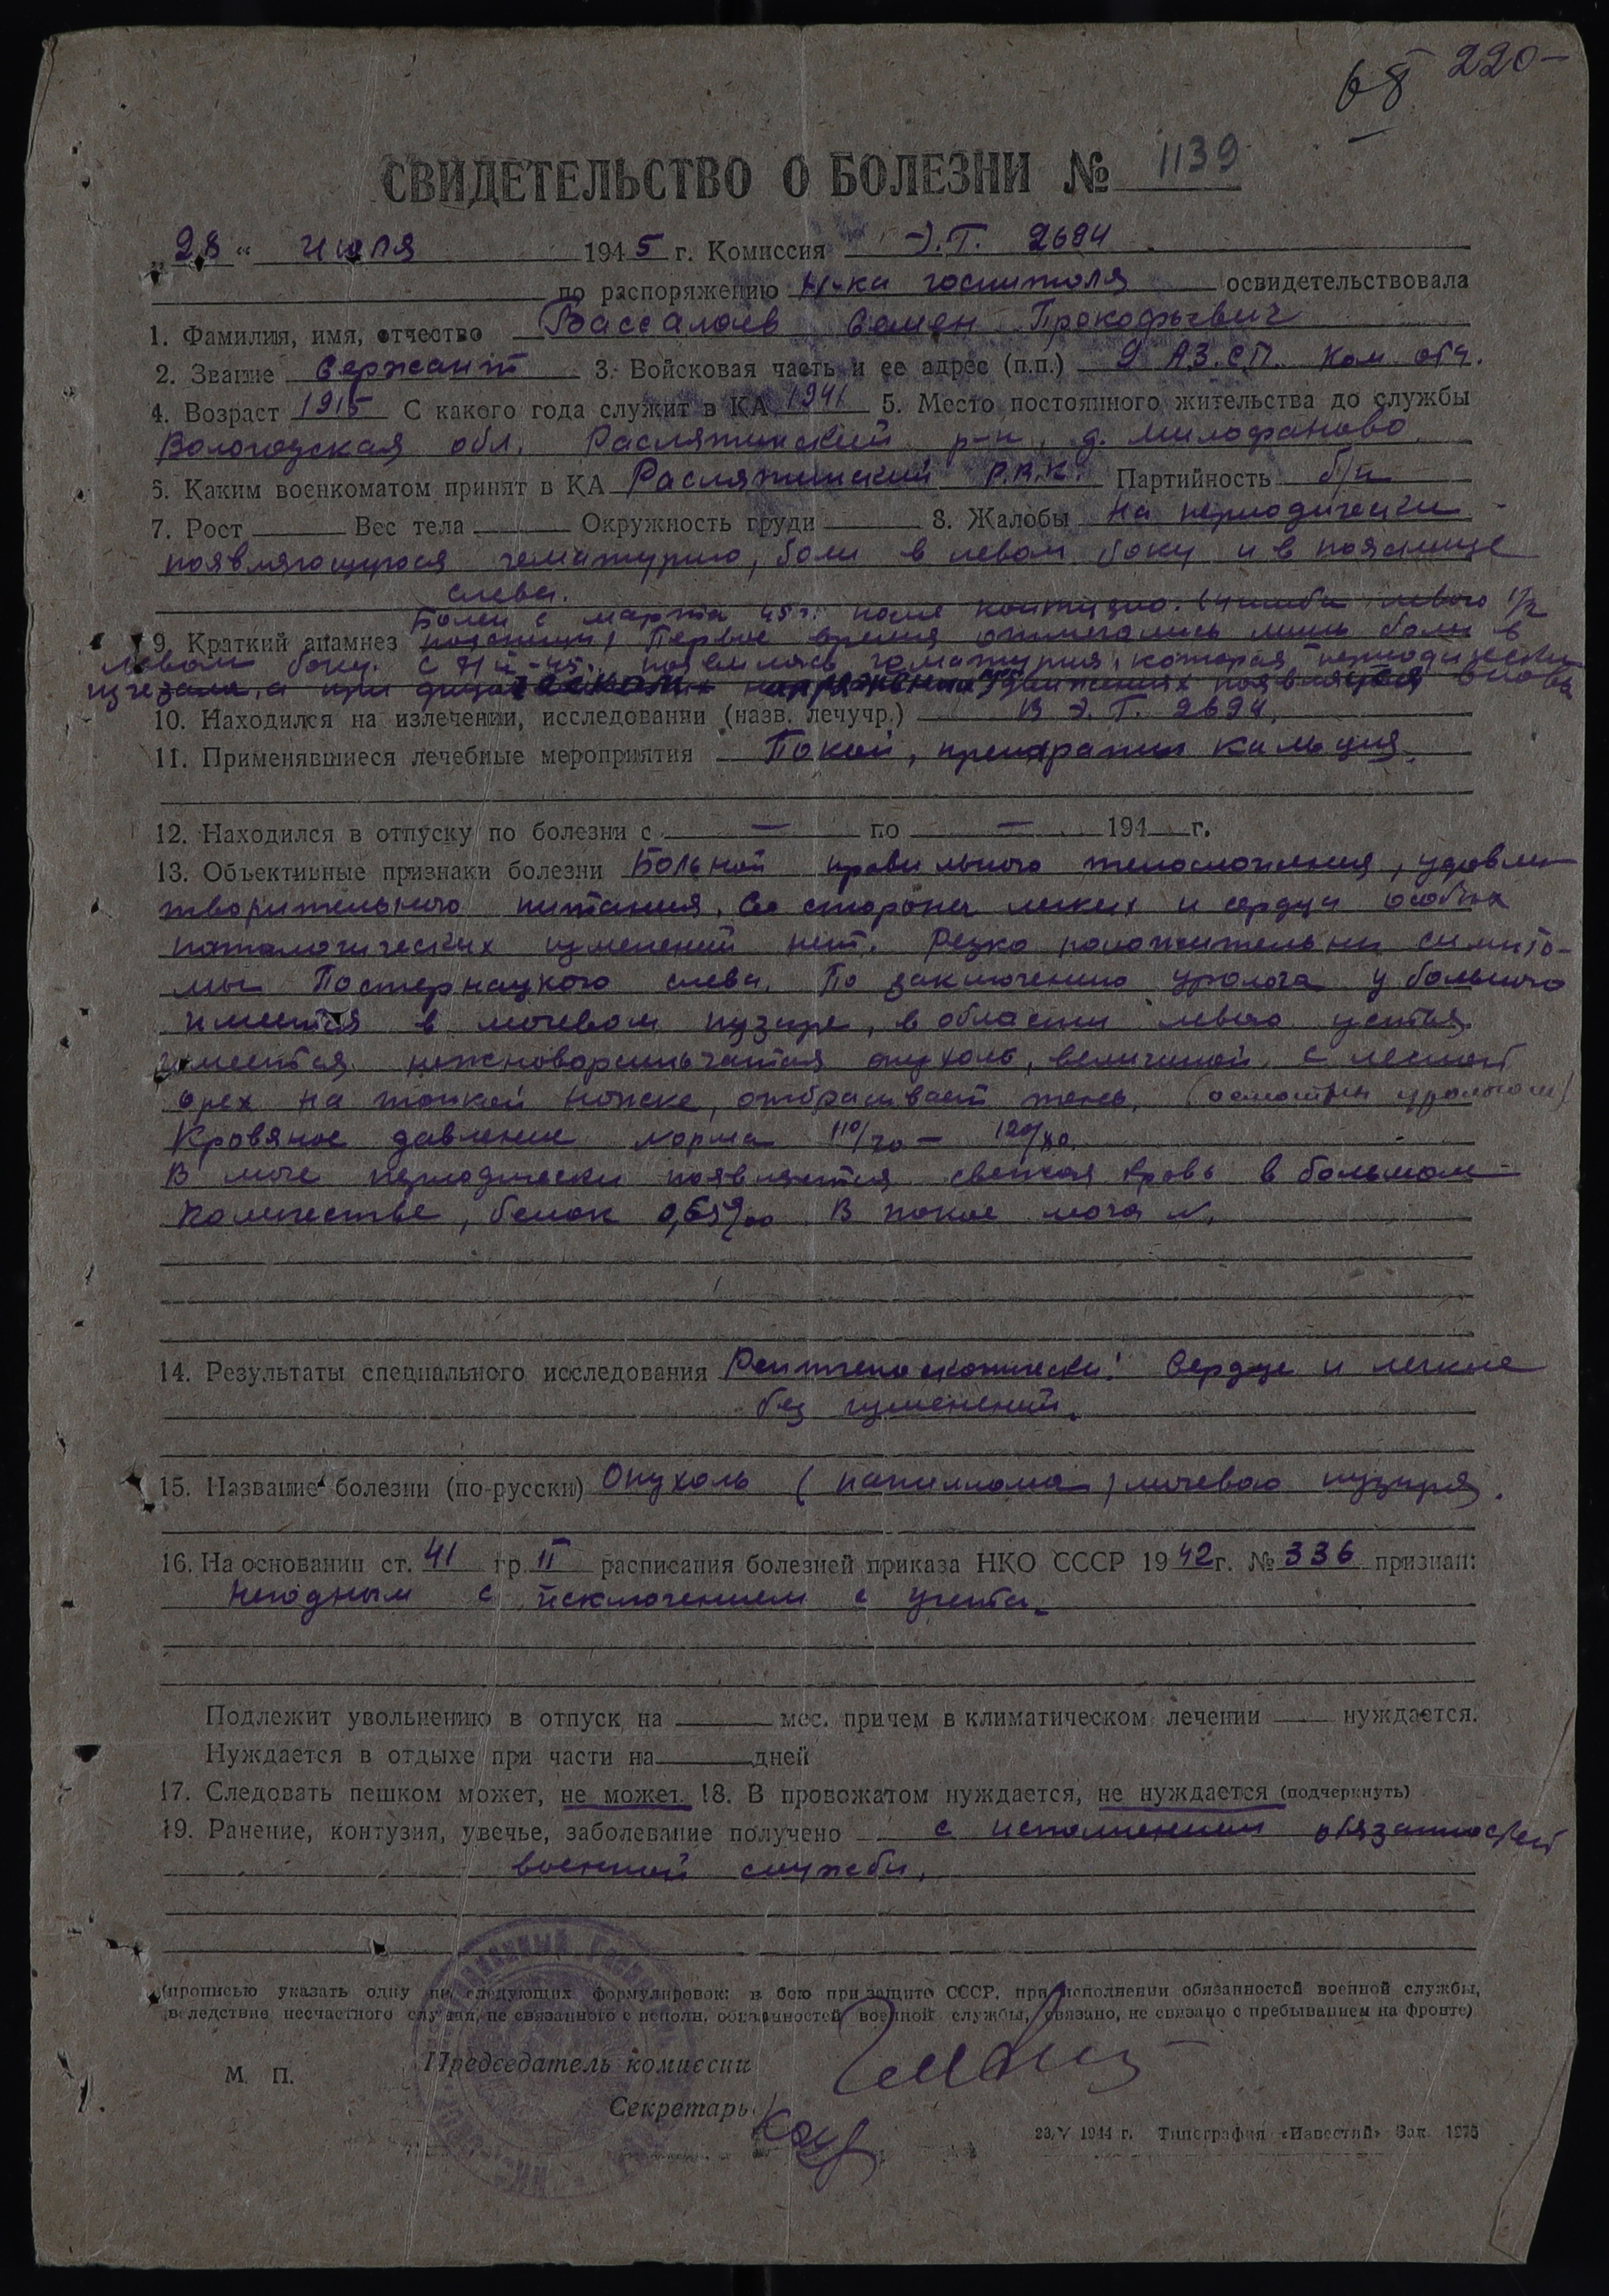 68 220-
СВИДЕТЕЛЬСТВО О БОЛЕЗНИ № 1139
„28“ июля 1945 г. Комиссия Э.Г. 2694
по распоряжению Н-ка госпиталя освидетельствовала
1. Фамилия, имя, отчество Вассалаев Семен Прокофьевич
2. Звание Сержант 3. Войсковая часть и ее адрес (п.п.) 9 А.З.С.П. Ком. отд.
4. Возраст 1915 С какого года служит в КА 1941 5. Место постоянного жительства до службы
Вологодская обл. р-н. д. Милофаново
6. Каким военкоматом принят в КА Р.В.К. Партийность б/п
7. Рост Вес тела Окружность груди 8. Жалобы На периодически
появляющуюся гематурию, боли в левом боку и в пояснице
слева.
Болен с марта 45 г. после контузию. (ушиба левого 1/2
9. Краткий анамнез поясницы) Первое время отмечались лишь боли в
левом боку. С появилась гематурия, которая периодически
исчезала, а при физическом напряжении движениях появляется снова
10. Находился на излечении, исследовании (назв. лечучр.) В Э.Г. 2694.
11. Применявшиеся лечебные мероприятия Покой, препараты кальция.
12. Находился в отпуску по болезни с — по — 194 г.
13. Объективные признаки болезни Больной правильного телосложения, удовле-
творительного питания. Со стороны легких и сердца особых
паталогических изменений нет. Резко положительны симпто-
мы Постернацкого слева. По заключению уролога у больного
имеется в мочевом пузыре, в области левого устья
имеется нежноворсинчатая опухоль, величиной с лесной
орех на тонкой ножке, отбрасывает тень. (осмотрен урологом)
Кровяное давление норма 110/70 — 120/80.
В моче периодически появляется свежая кровь в большом
количестве, белок 0,65‰ В покое моча N.
14. Результаты специального исследования Рентгеноскопически: Сердце и легкие
без изменений.
15. Название болезни (по-русски) Опухоль (папиллома) мочевого пузыря.
16. На основании ст. 41 гр II расписания болезней приказа НКО СССР 1942 г. № 336 признан:
Негодным с исключением с учета.
Подлежит увольнению в отпуск на мес. причем в климатическом лечении нуждается.
Нуждается в отдыхе при части на дней
17. Следовать пешком может, не может. 18. В провожатом нуждается, не нуждается (подчеркнуть)
19. Ранение, контузия, увечье, заболевание получено с исполнением обязанностей
военной службы.
(прописью указать одну из следующих формулировок: в бою при защите СССР, при исполнении обязанностей военной службы,
вследствие несчастного случая, не связанного с исполн. обязанностей военной службы, связано, не связано с пребыванием на фронте)
Председатель комиссии
М. П.
Секретарь
23/V 1944 г. Типография «Известий» Зак. 1275